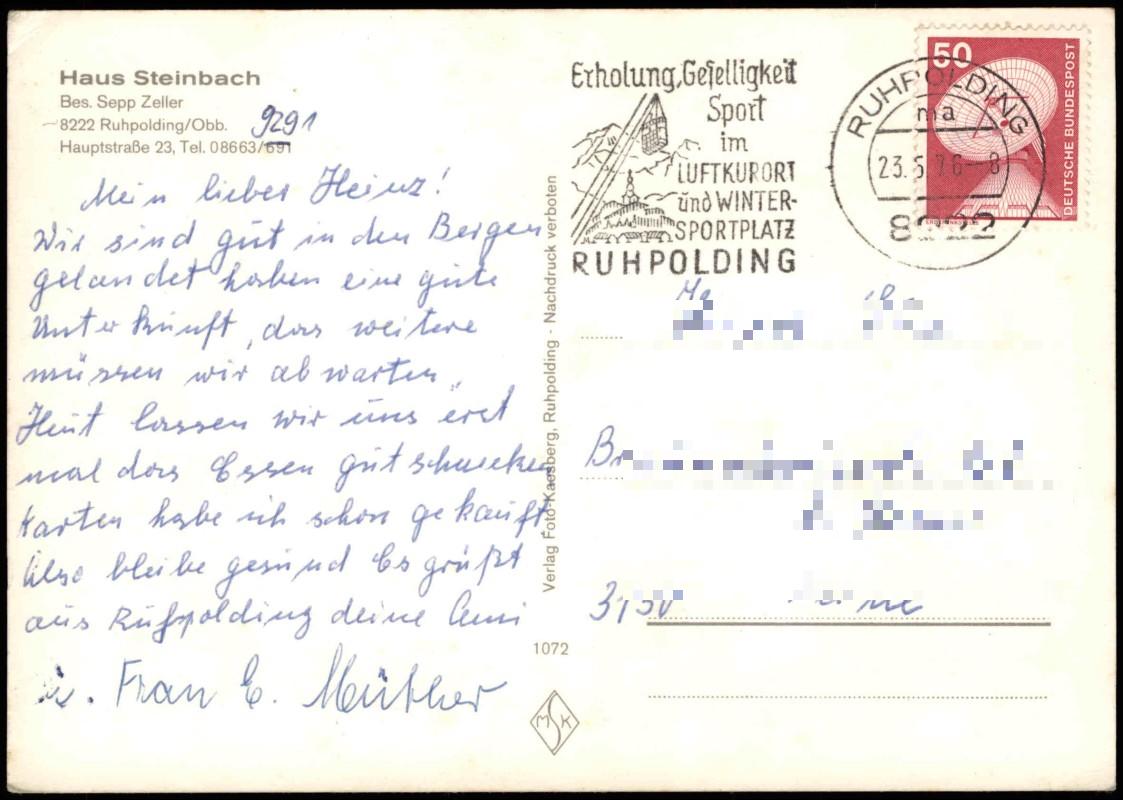 Haus Steinbach
Bes. Sepp Zeller
8222 Ruhpolding/Obb.
Hauptstraße 23, Tel. 08663/691
9291
Mein lieber Heinz!
Wir sind gut in den Bergen
gelandet haben eine gute
Unterkunft, das weitere
müssen wir abwarten,
Heut lassen wir uns erst
mal das Essen gut schmecken
Karten habe ich schon gekauft
Also bleibe gesund Es grüßt
aus Ruhpolding deine
u. Frau E. Müther
Verlag Foto-Kaesberg, Ruhpolding - Nachdruck verboten
1072
MSK
Erholung, Geselligkeit
Sport
im
LUFTKURORT
und WINTER-
SPORTPLATZ
RUHPOLDING
RUHPOLDING
ma
23.5.76-8
8222
50
DEUTSCHE BUNDESPOST